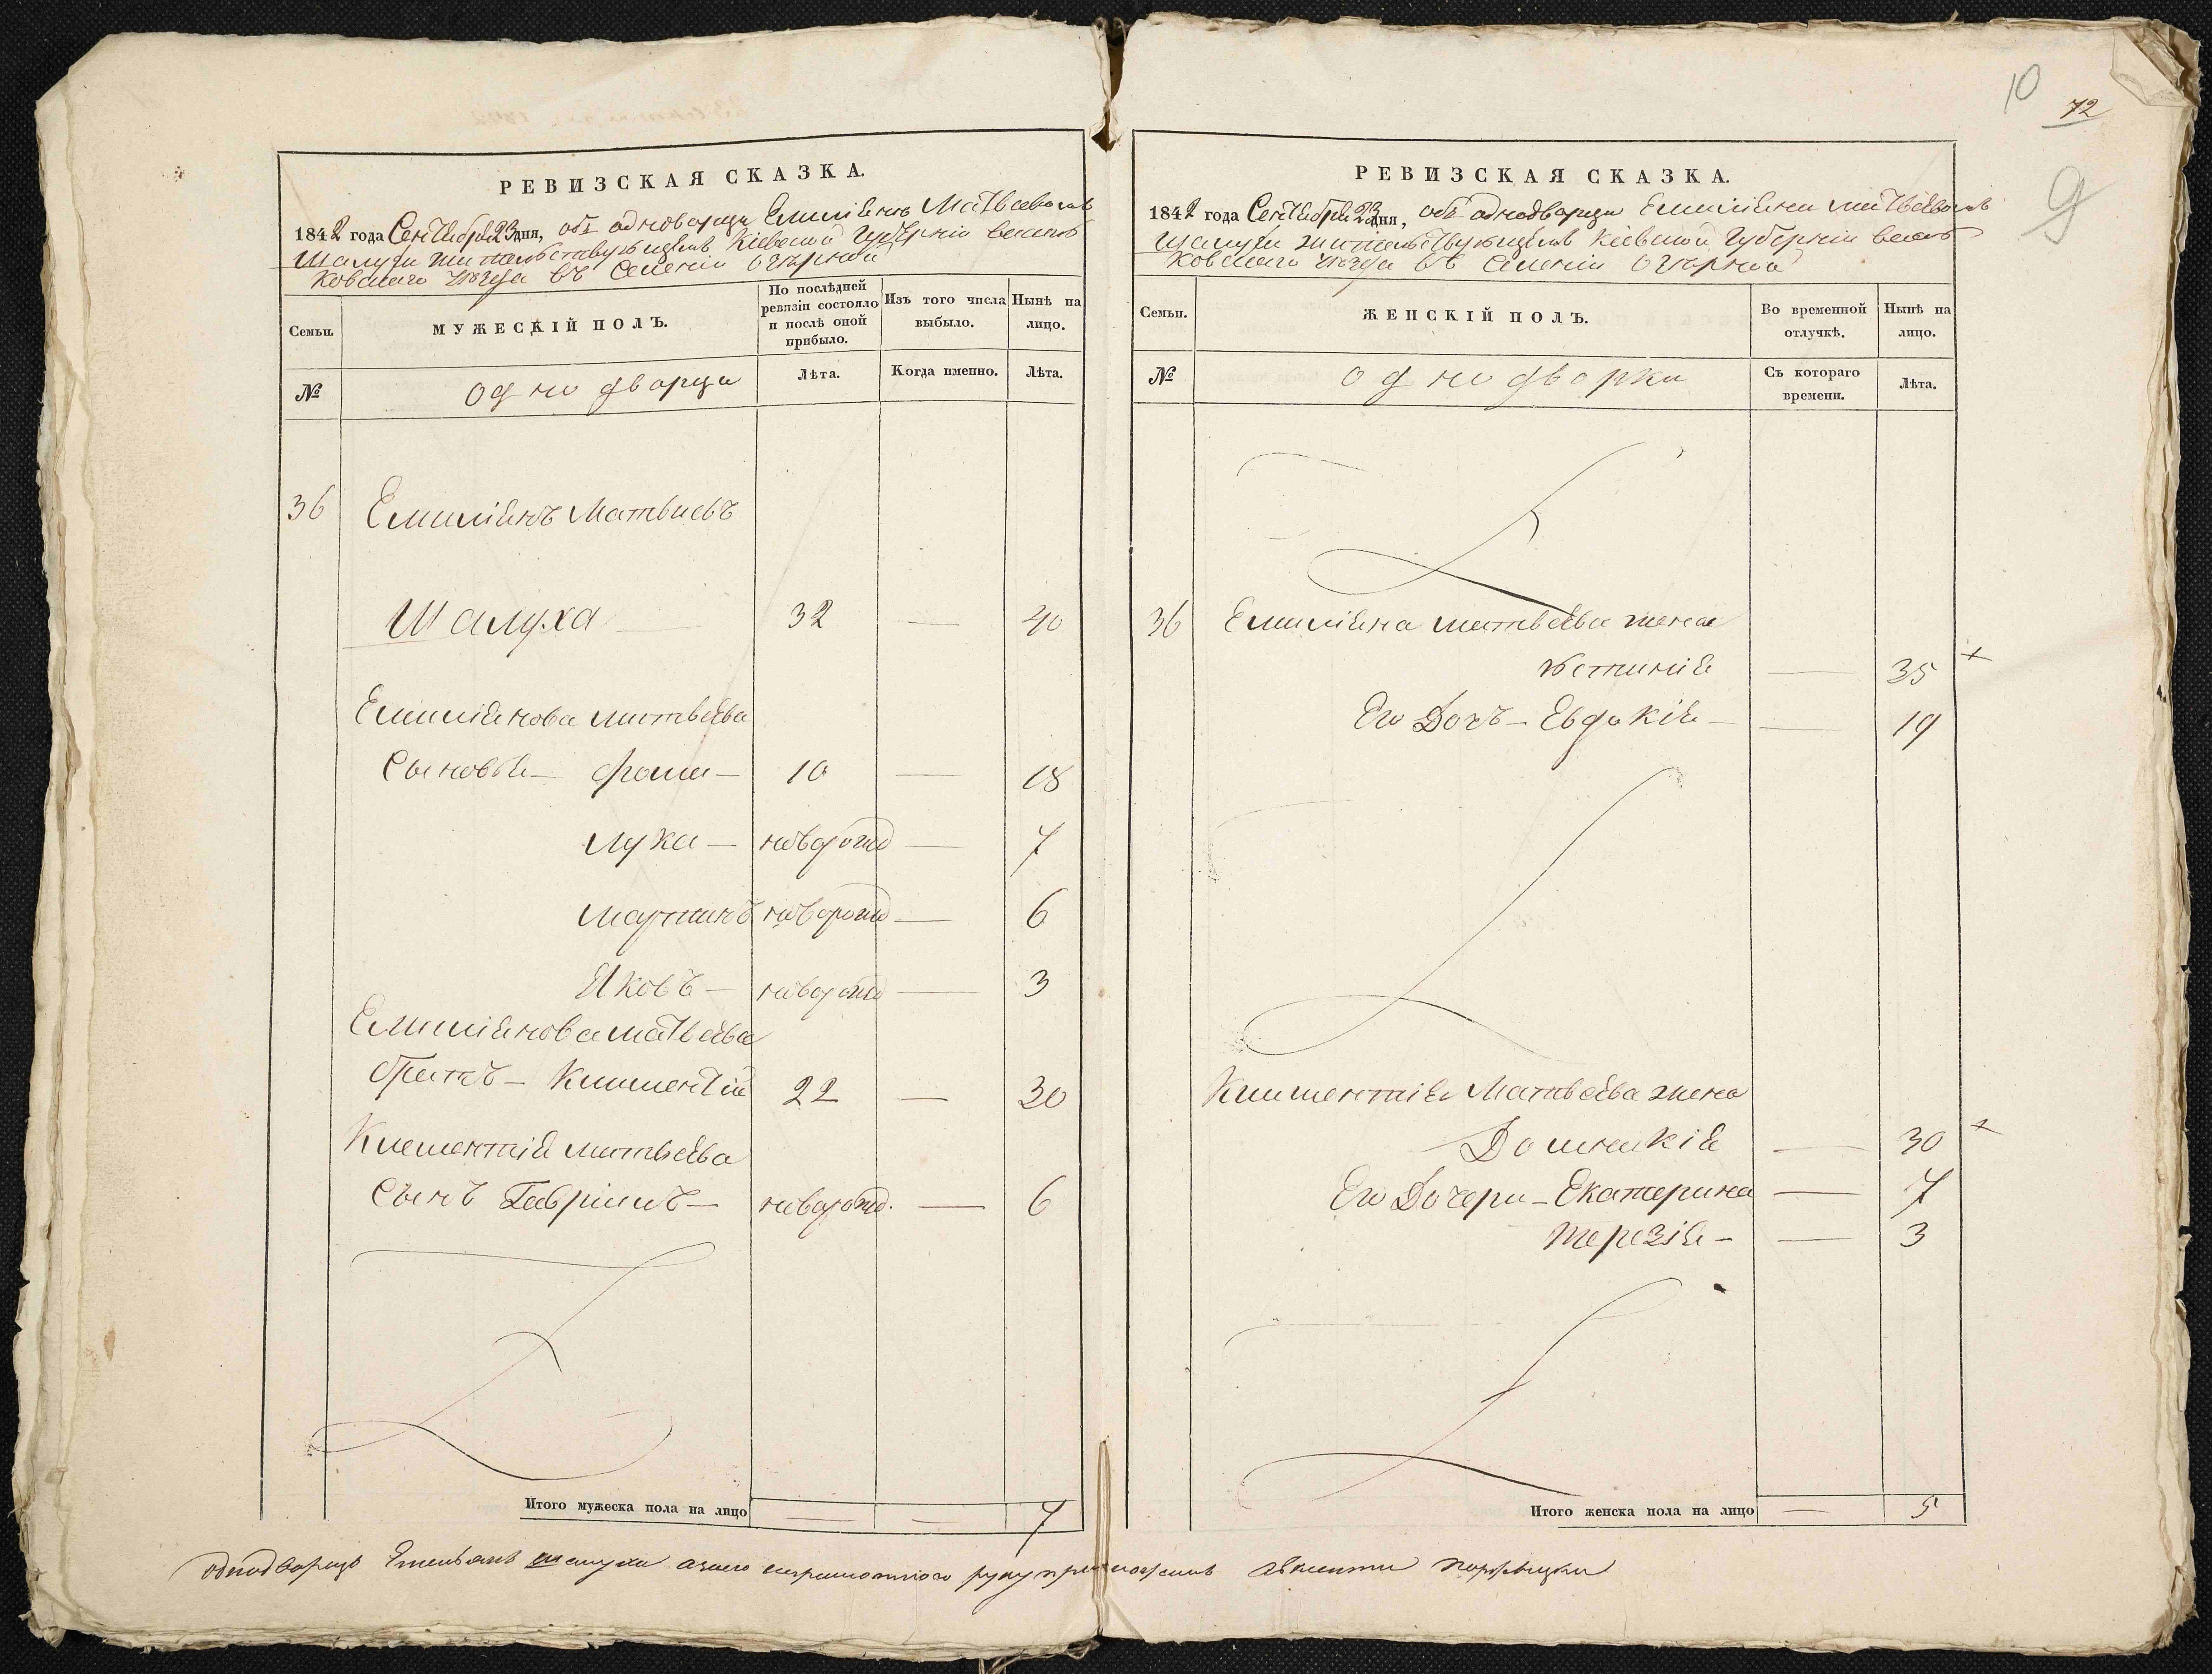 10
72
9
РЕВИЗСКАЯ СКАЗКА.
1842 года Сентября 23 дня, объ однодворцѣ Емиліянѣ Матвѣевомъ
Шалухи жительствующемъ Кіевской Губерніи Василь
ковскаго уѣзда въ Селеніи Озѣрной
Семьи.
МУЖЕСКІЙ ПОЛЪ.
По послѣдней ревизіи состояло и послѣ оной прибыло.
Изъ того числа выбыло.
Нынѣ на лицо.
№
однодворцы
Лѣта.
Когда именно.
Лѣта.
36 Емиліянъ Матвиевъ
Шалуха — 32 — 40
Емиліянова Матвѣева
Сыновья — Фома — 10 — 18
Лука — новорожд — 7
Мартинъ новорожд — 6
Яковъ — новорожд — 3
Емиліянова Матвѣева
братъ — Климентій 22 — 30
Клементія Матвѣева
Сынъ Гавріилъ — новорожд. — 6
Итого мужеска пола на лицо — — 7
РЕВИЗСКАЯ СКАЗКА.
1842 года Сентября 23 дня, объ однодворцѣ Емиліяни Матвѣевомъ
Шалухи жительствующемъ Кіевской Губерніи Василь
ковскаго уѣзда въ Селеніи Озѣрной
Семьи.
ЖЕНСКІЙ ПОЛЪ.
Во временной отлучкѣ.
Нынѣ на лицо.
№
однодворки
Съ котораго времени.
Лѣта.
36 Емиліяна Матвѣева жена
Юстинія — 35 +
Его Дочъ — Евдокія — — 19
Климентія Матвѣева жена
Домникія — 30 +
Его Дочери — Екатерина — 7
Терезія — — 3
Итого женска пола на лицо — 5
однодворецъ Емельянъ Шалуха а за него неграмотного руку приложилъ